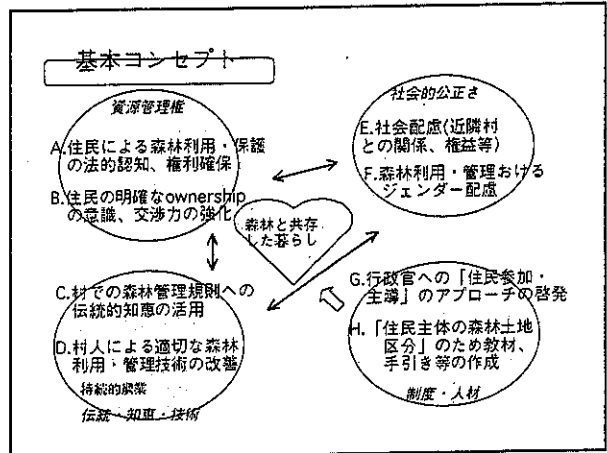 基本コンセプト
資源管理権
A.住民による森林利用・保護
の法的認知、権利確保
B.住民の明確なownership
の意識、交渉力の強化
社会的公正さ
E.社会配慮(近隣村
との関係、権益等)
F.森林利用・管理おける
ジェンダー配慮
森林と共存
した暮らし
C.村での森林管理規則への
伝統的知恵の活用
D.村人による適切な森林
利用・管理技術の改善
持続的農業
伝統・知恵・技術
G.行政官への「住民参加・
主導」のアプローチの啓発
H.「住民主体の森林土地
区分」のため教材、
手引き等の作成
制度・人材